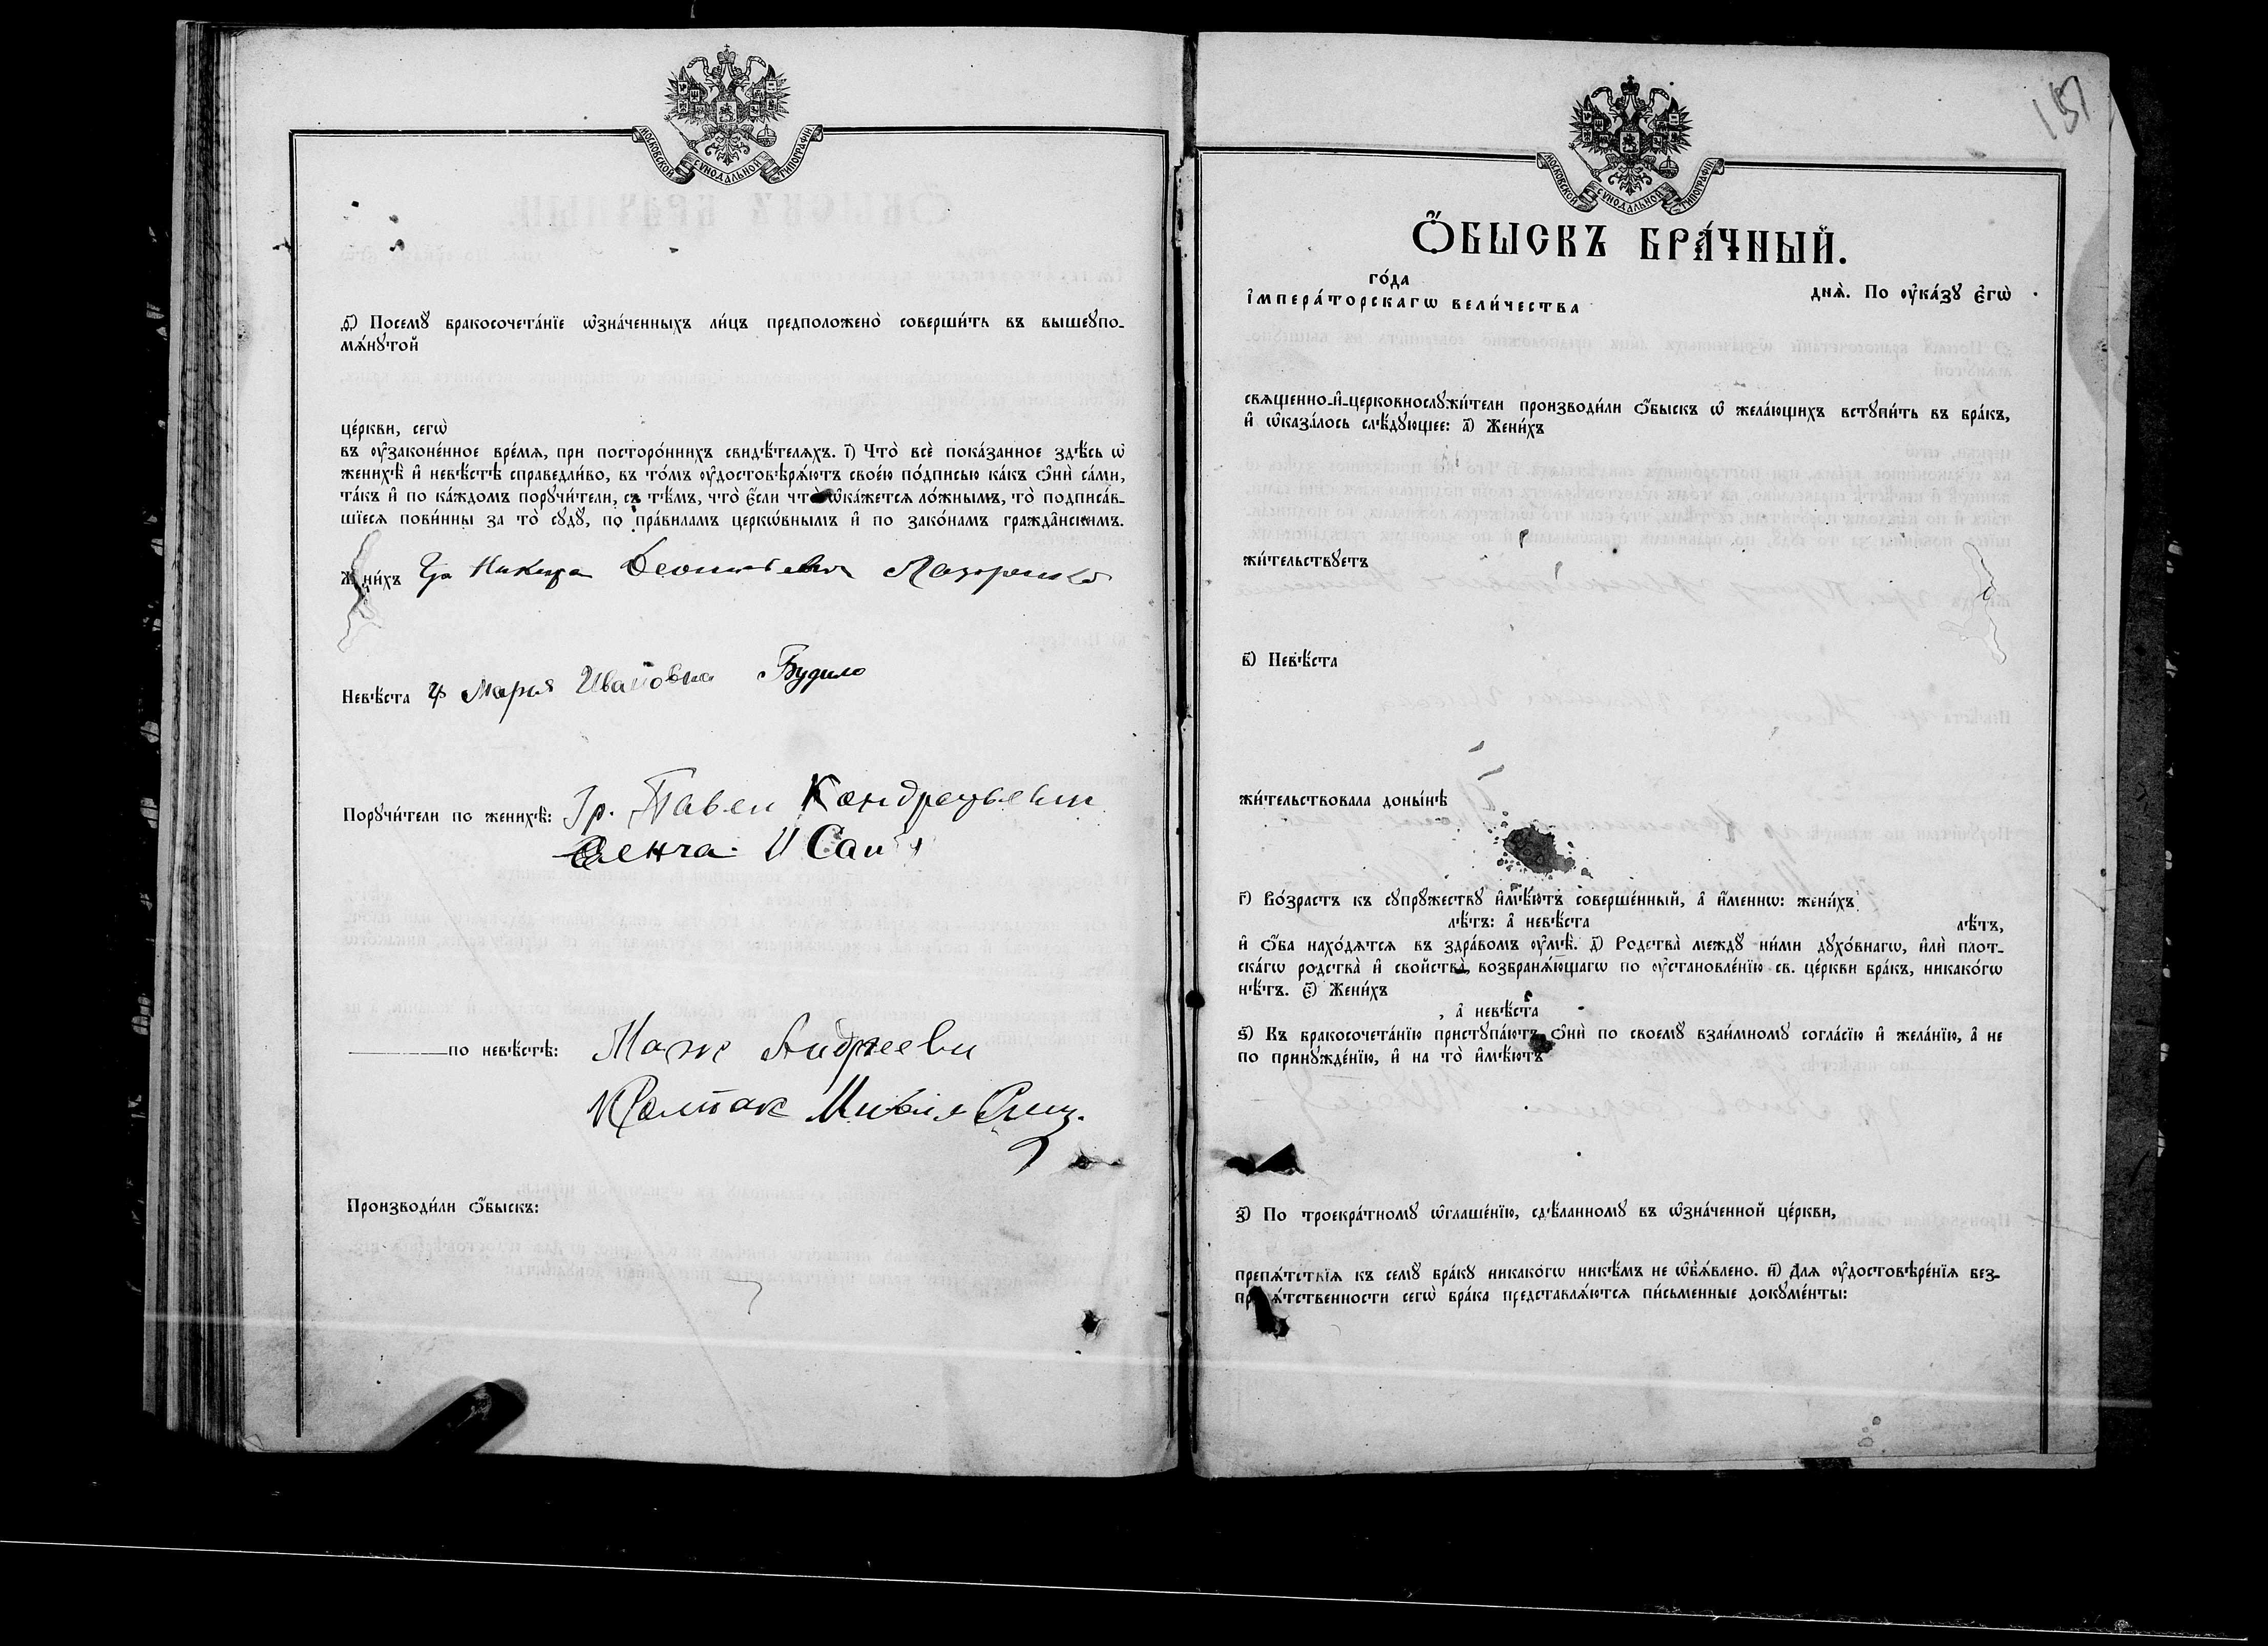 МОСКОВСКОЙ СѴНОДАЛЬНОЙ ТИПОГРАФІИ
ѳ҃) Посемꙋ̀ бракосочета́нїе ѡ҆зна́ченныхъ ли́цъ предположено̀ соверши́ть въ вышеꙋпо-
мѧ́нꙋтой
це́ркви, сегѡ̀
въ ᲂу҆законе́нное вре́мѧ, при посторо́ннихъ свидѣ́телѧхъ. і҃) Что̀ всѐ пока́занное здѣ́сь ѡ҆
женихѣ̀ и҆ невѣ́стѣ справедли́во, въ то́мъ ᲂу҆достовѣрѧ́ютъ свое́ю по́дписью ка́къ ѻ҆нѝ са́ми,
та́къ и҆ по ка́ждомъ порꙋчи́тели, съ тѣ́мъ, что̀ є҆́сли что̀ ѡ҆ка́жетсѧ ло́жнымъ, то̀ подписа́в-
шїесѧ пови́нны за то̀ сꙋдꙋ̀, по пра́виламъ церкѡ́внымъ и҆ по зако́намъ гражда̑нскимъ.
Жени́хъ Гр Никита Леонтьевич Лазаренко
Невѣ́ста Гр Мария Ивановна Будило
Порꙋчи́тели по женихѣ̀: Гр. Павел Кондратьевич
по невѣ́стѣ: Андреевич
Колпак
Производи́ли ѻ҆́быскъ:
151
МОСКОВСКОЙ СѴНОДАЛЬНОЙ ТИПОГРАФІИ
Ѻ҆́БЫСКЪ БРА́ЧНЫЙ.
го́да
днѧ̀. По ᲂу҆ка́зꙋ є҆гѡ̀
і҆мпера́торскагѡ вели́чества
свѧщенно-и҆-церковнослꙋжи́тели производи́ли ѻ҆́быскъ ѡ҆ жела́ющихъ встꙋпи́ть въ бра́къ,
и҆ ѡ҆каза́лось слѣ́дꙋющее: а҃) Жени́хъ
жи́тельствꙋетъ
в҃) Невѣ́ста
жи́тельствовала доны́нѣ
г҃) Во́зрастъ къ сꙋпрꙋжествꙋ и҆мѣ́ютъ соверше́нный, а҆ и҆́меннѡ: жени́хъ
лѣ́тъ: а҆ невѣ́ста лѣ́тъ,
и҆ ѻ҆́ба нахо́дѧтсѧ въ здра́вомъ ᲂу҆мѣ̀. д҃) Родства̀ междꙋ ни́ми дꙋхо́внагѡ, и҆лѝ плот-
ска́гѡ родства̀ и҆ свойства̀, возбранѧ́ющагѡ по ᲂу҆становле́нїю св. це́ркви бра́къ, никако́гѡ
нѣ́тъ. є҃) Жени́хъ
, а҆ невѣ́ста
ѕ҃) Къ бракосочета́нїю пристꙋпа́ютъ ѻ҆нѝ по своемꙋ̀ взаи́мномꙋ согла́сїю и҆ жела́нїю, а҆ не
по принꙋжде́нїю, и҆ на то̀ и҆мѣ́ютъ
з҃) По троекра́тномꙋ ѡ҆глаше́нїю, сдѣ́ланномꙋ въ ѡ҆зна́ченной це́ркви,
препѧ́тствїѧ къ семꙋ̀ бра́кꙋ никако́гѡ никѣ́мъ не ѡ҆б̾ѧ́влено. и҃) Длѧ ᲂу҆достовѣре́нїѧ без-
препѧ́тственности сегѡ̀ бра́ка представлѧ́ютсѧ пи́сьменные докꙋме́нты: